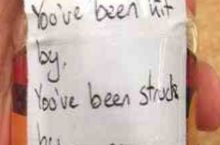 You've been hit
by.
You've been struck
by